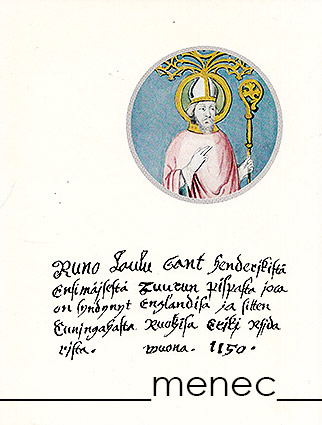 Runo Laulu Sant Henderikistä
Ensimäjsestä Tuurun Pispasta joca
on syndynyt Englandisa ja sitten
Cuningahasta Ruotzisa Erikj
rista. wuona. 1150.
menec